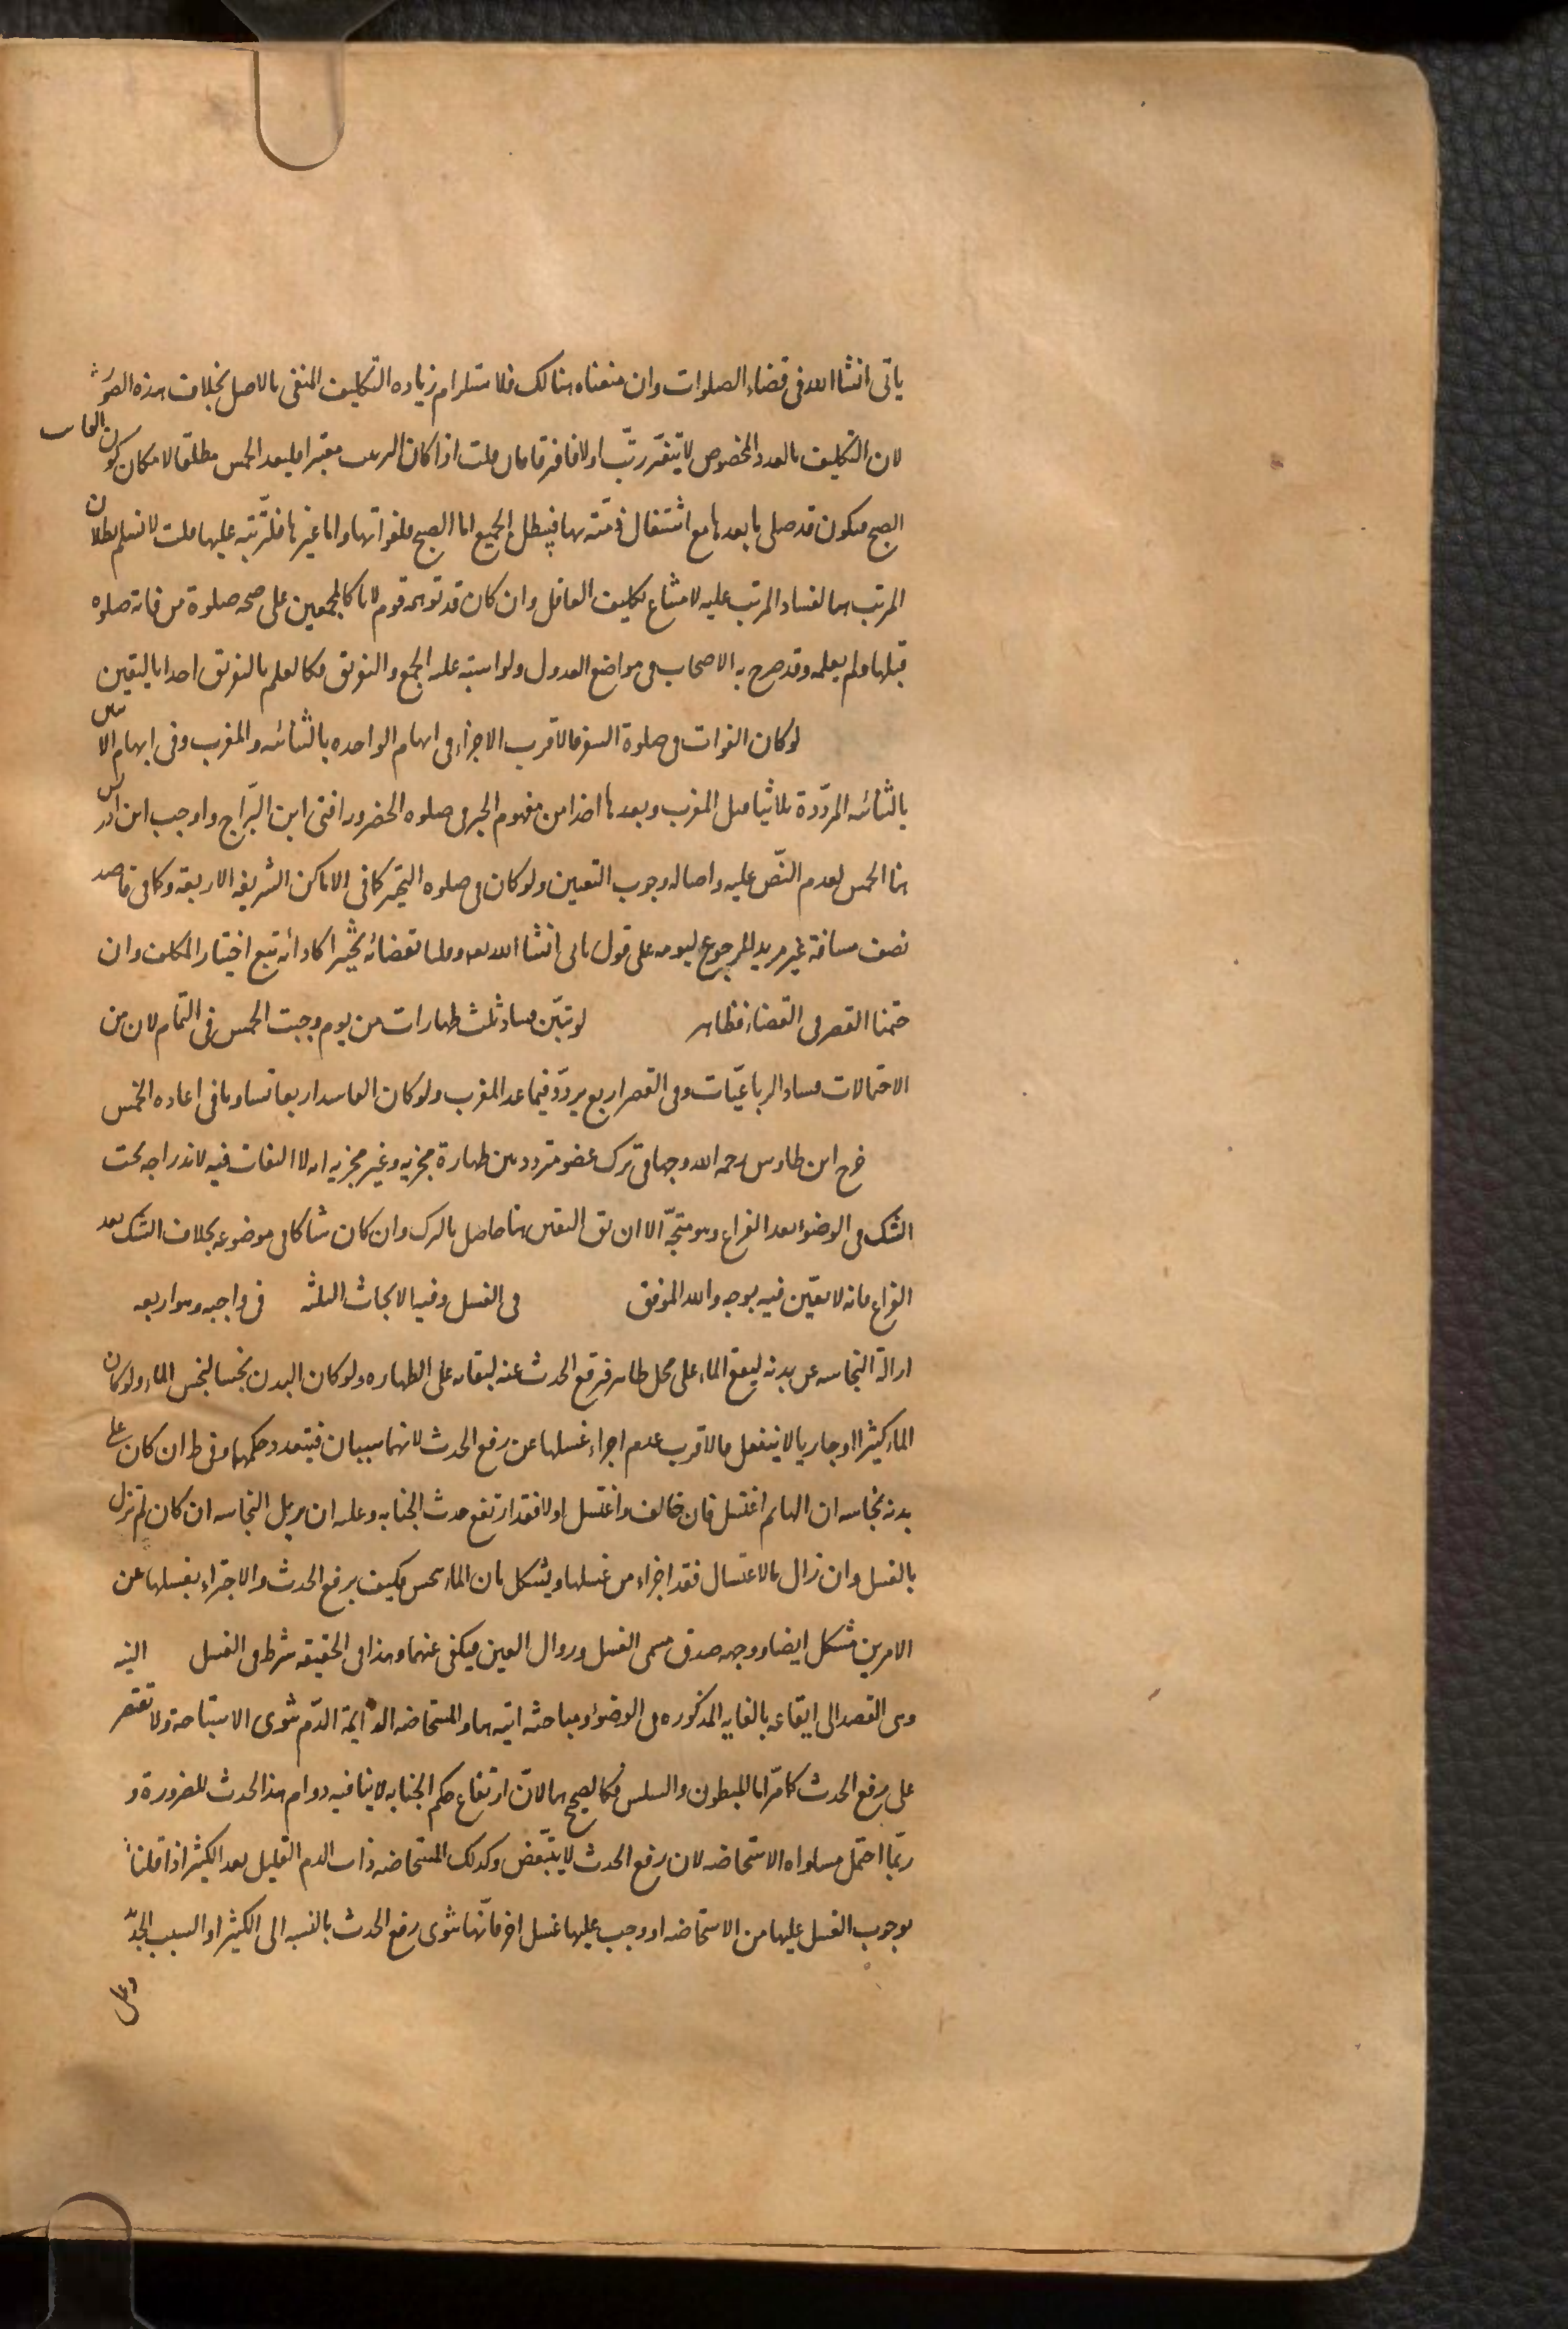 ياتى انشا الله فى قضاء الصلوات وان منعناه هنالك فلاستلزام زياده التكليف المنفى بالاصل بخلاف هذه الصورة
لان التكليف بالعدد المخصوص لا يتغير رتب اولا فافترقا فان قلت اذا كان الترتيب معتبرا فليعد الخمس مطلقا لامكان كون الفاسد
الصبح فيكون قد صلى ما بعدها مع اشتغال ذمته بها فيبطل الجميع اما الصبح فلفواتها واما غيرها فلترتبه عليها قلت لا نسلم بطلان
المرتب هنا لفساد المرتب عليه لامتناع تكليف الغافل وان كان قد توهمه قوم لانا كالمجمعين على صحه صلوة من فاته صلوه
قبلها ولم يعلمه وقد صرح به الاصحاب فى مواضع العدول ولو اشتبه عليه الجمع والتفريق فكالعلم بالتفريق اخدا باليقين
لو كان الفوات فى صلوة السفر فالاقرب الاجزاء فى ابهام الواحده بالثنائيه والمغرب وفى ابهام الاثنين
بالثنائيه المردّدة ثلاثيا قبل المغرب وبعدها اخذا من مفهوم الخبر فى صلوه الحضر وبه افتى ابن البرّاج واوجب ابن ادريس
هنا الخمس لعدم النصّ عليه واصاله وجوب التعيين ولو كان فى صلوه التخيير كما فى الاماكن الشريفه الاربعه وكما فى قاصد
نصف مسافة غير مريد للرجوع ليومه على قول ياتى انشا الله تعه وقلنا بقضائه تخييرا كادائه تبع اختيار المكلف وان
حتمنا القصر فى القضاء فظاهر لو تبيّن فساد ثلث طهارات من يوم وجبت الخمس فى التمام لان من
الاحتمالات فساد الرباعيّات وفى القصر اربع يردّد فيما عدا المغرب ولو كان الفاسد اربعا تساويا فى اعاده الخمس
خرج ابن طاوس رحمه الله وجها فى ترك عضو متردد بين طهارة مجزيه وغير مجزيه انه لا التفات فيه لاندراجه تحت
الشك فى الوضوء بعد الفراغ وهو متجه الا ان يق اليقين هنا حاصل بالترك وان كان شاكا فى موضوعه بخلاف الشك بعد
الفراغ فانه لا يقين فيه بوجه والله الموفق فى الغسل وفيه الابحاث الثلثه فى واجبه وهو اربعه
ازالة النجاسه عن بدنه ليقع الماء على محل طاهر فيرفع الحدث عنه لبقائه على الطهاره ولو كان البدن نجسا لنجس الماء ولو كان
الماء كثيرا او جاريا لا ينفعل فالاقرب عدم اجزاء غسلها عن رفع الحدث لانهما سببان فيتعدد حكمهما وفى ط ان كان على
بدنه نجاسه ازالها ثم اغتسل فان خالف واغتسل اولا فقد ارتفع حدث الجنابه وعليه ان يزيل النجاسه ان كان لم تزل
بالغسل وان زال بالاغتسال فقد اجزاه من غسلها ويشكل بان الماء نجس فكيف يرفع الحدث والاجزاء بغسلها عن
الامرين مشكل ايضا ووجهه صدق مسمى الغسل وزوال العين فيكفى عنهما وهذا فى الحقيقه شرط فى الغسل النيه
وهى القصد الى ايقاعه بالغايه المذكوره فى الوضوء ومباحثه اتيه هنا والمستحاضه الدائمة الدّم تنوى الاستباحة ولا تقتصر
على رفع الحدث كما مرّ اما المبطون والسلس فكالصحيح هنا لانّ ارتفاع حكم الجنابه لا ينافيه دوام هذا الحدث للضرورة و
ربّما احتمل مساواه الاستحاضه لان رفع الحدث لا يتبعّض وكذلك المستحاضه ذات الدم القليل بعد الكثير اذا قلنا
بوجوب الغسل عليها من الاستحاضه او وجب عليها غسل اخر فانّها تنوى رفع الحدث بالنسبه الى الكثير او السبب المجدّد